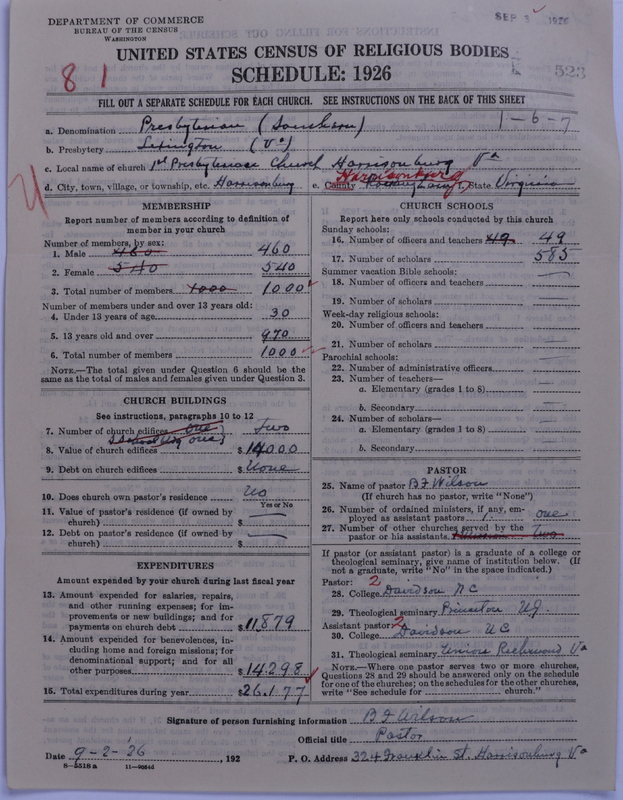 DEPARTMENT OF COMMERCE
BUREAU OF THE CENSUS
WASHINGTON
SEP 3 1926
UNITED STATES CENSUS OF RELIGIOUS BODIES
SCHEDULE: 1926
8 1
523
FILL OUT A SEPARATE SCHEDULE FOR EACH CHURCH. SEE INSTRUCTIONS ON THE BACK OF THIS SHEET
a. Denomination Presbyterian (Southern) 1-6-7
b. Presbytery Lexington (Va)
c. Local name of church 1st Presbyterian Church Harrisonburg Va
d. City, town, village, or township, etc. Harrisonburg e. County Harrisonburg f. State Virginia
MEMBERSHIP
Report number of members according to definition of
member in your church
Number of members, by sex:
1. Male 460 460
2. Female 540 540
3. Total number of members 1000 1000
Number of members under and over 13 years old:
4. Under 13 years of age 30
5. 13 years old and over 970
6. Total number of members 1000
NOTE.—The total given under Question 6 should be the
same as the total of males and females given under Question 3.
CHURCH BUILDINGS
See instructions, paragraphs 10 to 12
7. Number of church edifices one Two
8. Value of church edifices $ 14000
9. Debt on church edifices $ None
10. Does church own pastor's residence No
Yes or No
11. Value of pastor's residence (if owned by
church) $
12. Debt on pastor's residence (if owned by
church) $
EXPENDITURES
Amount expended by your church during last fiscal year
13. Amount expended for salaries, repairs,
and other running expenses; for im-
provements or new buildings; and for
payments on church debt $ 11,879
14. Amount expended for benevolences, in-
cluding home and foreign missions; for
denominational support; and for all
other purposes $ 14298
15. Total expenditures during year $ 26,177
CHURCH SCHOOLS
Report here only schools conducted by this church
Sunday schools:
16. Number of officers and teachers 49 49
17. Number of scholars 583
Summer vacation Bible schools:
18. Number of officers and teachers
19. Number of scholars
Week-day religious schools:
20. Number of officers and teachers
21. Number of scholars
Parochial schools:
22. Number of administrative officers
23. Number of teachers—
a. Elementary (grades 1 to 8)
b. Secondary
24. Number of scholars—
a. Elementary (grades 1 to 8)
b. Secondary
PASTOR
25. Name of pastor B F Wilson
(If church has no pastor, write "None")
26. Number of ordained ministers, if any, em-
ployed as assistant pastors 1 one
27. Number of other churches served by the
pastor or his assistants Two
If pastor (or assistant pastor) is a graduate of a college or
theological seminary, give name of institution below. (If
not a graduate, write "No" in the space indicated.)
Pastor: 2
28. College Davidson NC
29. Theological seminary Princeton NJ.
Assistant pastor: 2
30. College Davidson NC
31. Theological seminary Union Richmond Va
NOTE.—Where one pastor serves two or more churches,
Questions 28 and 29 should be answered only on the schedule
for one of the churches; on the schedules for the other churches,
write "See schedule for church."
Signature of person furnishing information B F Wilson
Official title Pastor
Date 9-2-'26, 192 P. O. Address 324 Franklin St. Harrisonburg Va
8-5518a 11-9054d